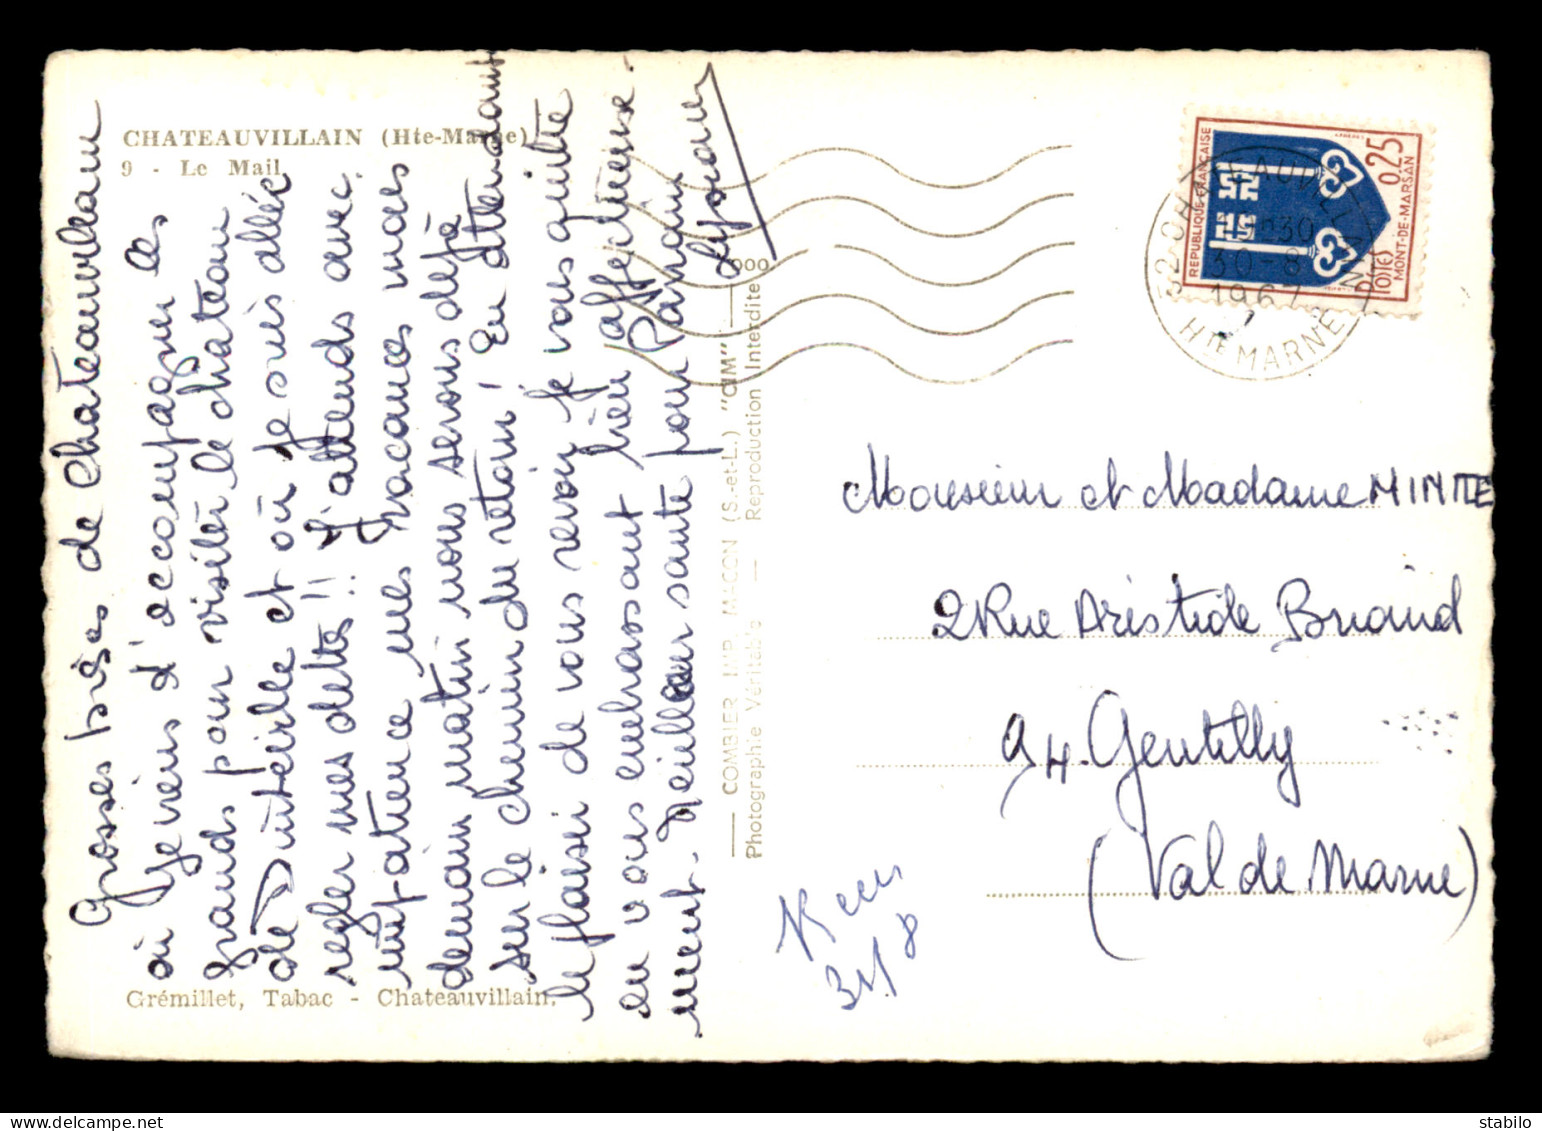 CHATEAUVILLAIN (Hte-Marne)
9 - Le Mail
Grosses bises de Chateauvillain
où je viens d'accompagner les
grands pour visiter le château
de Dinteville et où je suis allée
regler mes dettes!! J'attends avec
impatience mes vacances mais
demain matin nous serons déjà
sur le chemin du retour! En attendant
le plaisir de vous revoir je vous quitte
en vous embrassant bien affectueuse-
ment. Meilleur santé pour Parrain
Grémillet, Tabac - Chateauvillain.
COMBIER IMP. MACON (S.-et-L.) "CIM"
Photographie Véritable — Reproduction Interdite
REPUBLIQUE FRANÇAISE
0,25
POSTES
MONT-DE-MARSAN
52 CHATEAUVILLAIN
30-8
1967
HTE MARNE
Monsieur et Madame MINITE
2 Rue Aristide Briand
94. Gentilly
(Val de Marne)
31/8
stabilo - delcampe.net